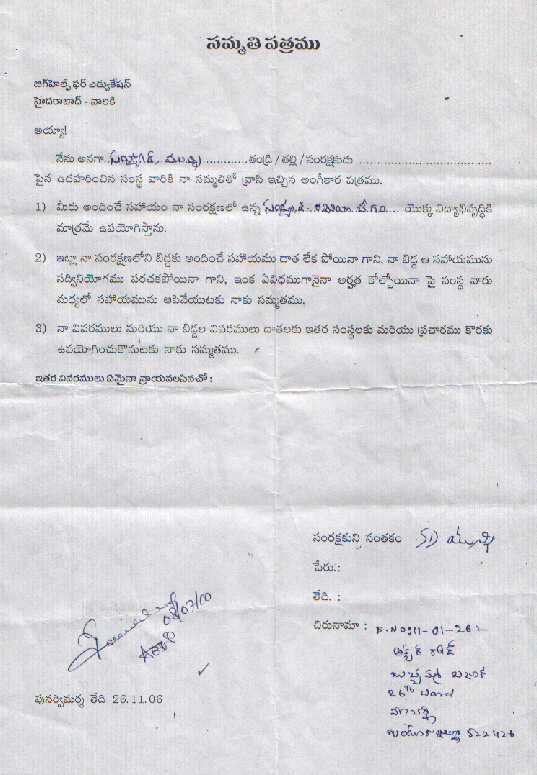 సమ్మతి పత్రము
బిగ్‌హెల్ప్ ఫర్ ఎడ్యుకేషన్
హైదరాబాద్ - వారికి
అయ్యా!
నేను అనగా ........... తండ్రి / తల్లి / సంరక్షకుడు ...................................
పైన ఉదహరించిన సంస్థ వారికి నా సమ్మతితో వ్రాసి ఇచ్చిన అంగీకార పత్రము.
1) మీరు అందించే సహాయం నా సంరక్షణలో ఉన్న .... యొక్క విద్యాభివృద్ధికి
మాత్రమే ఉపయోగిస్తాను.
2) ఇట్లా నా సంరక్షణలోని బిడ్డకు అందించే సహాయము దాత లేక పోయినా గాని, నా బిడ్డ ఆ సహాయమును
సద్వినియోగము పరచకపోయినా గాని, ఇంక ఏవిధముగానైనా అర్హత కోల్పోయినా పై సంస్థ వారు
మధ్యలో సహాయమును ఆపివేయుటకు నాకు సమ్మతము.
3) నా వివరములు మరియు నా బిడ్డల వివరములు దాతలకు ఇతర సంస్థలకు మరియు ప్రచారము కొరకు
ఉపయోగించుకొనుటకు నాకు సమ్మతము.
ఇతర వివరములు ఏమైనా వ్రాయవలసినచో :
సంరక్షకుని సంతకం
పేరు.:
తేది. :
చిరునామా : 11-01-262
26th వార్డు
522426
పునర్విమర్శ తేది 26.11.06